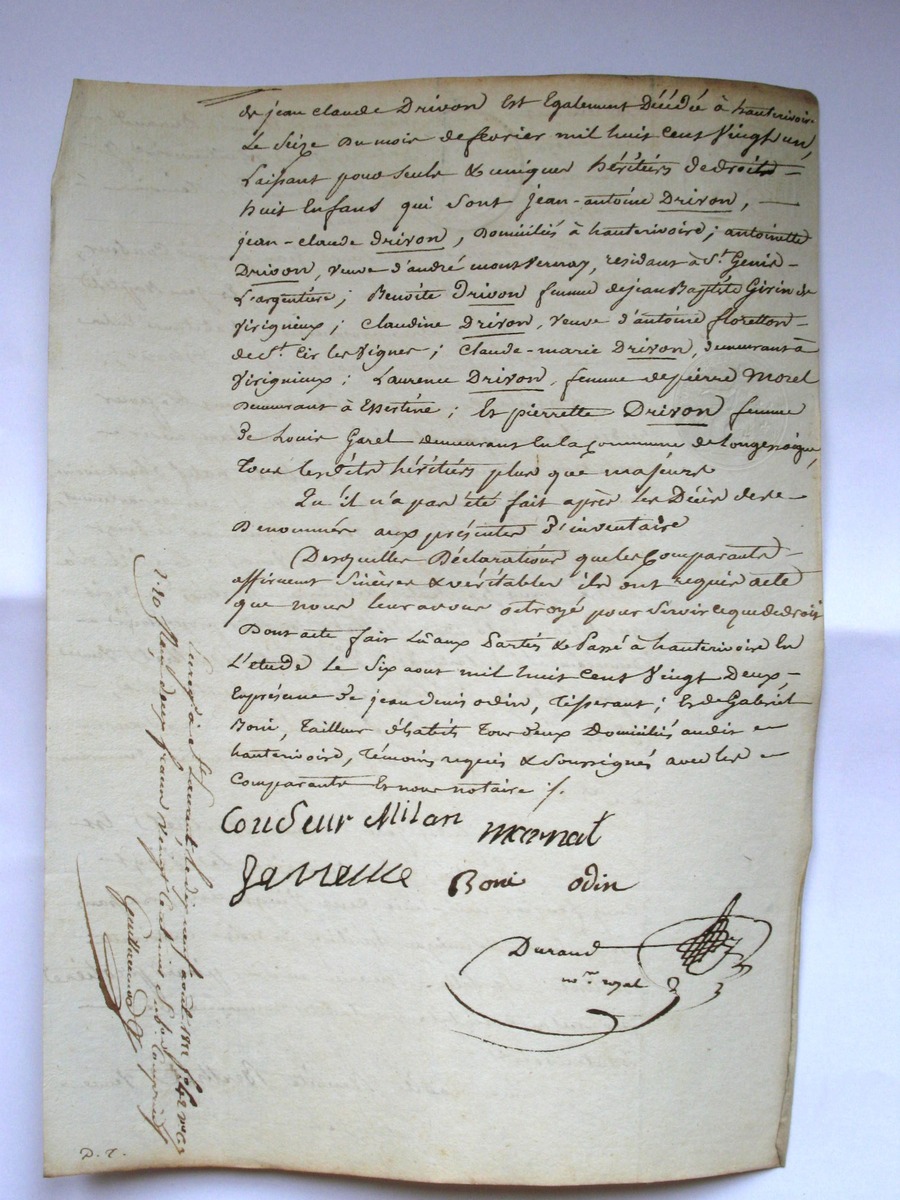 de jean claude Drivon Est Egalement Décédé à hauterivoire
Le Seize Du mois de fevrier mil huit cent Vingt un,
Laissant pour seuls & uniques héritiers de droits
huit Enfans qui sont jean-antoine Drivon,
jean-claude drivon, Domiciliés à hauterivoire; antoinette
Drivon, veuve d'andré montvernay, résidant à St. Genis
L'argentière; Benoîte Drivon femme de jean Baptiste Girin de
Virignieux; claudine Drivon, veuve d'antoine floretton
de St. Cir les Vignes; claude-marie Drivon, demeurant à
Virignieux; Laurence Drivon, femme de pierre Morel
Demeurant à Essertine; Et pierrette Drivon femme
de Louis Garel demeurant En la commune de longessaigne,
tous lesdits héritiers plus que majeurs
Qu'il n'a pas été fait après les Décès des
Denommés aux présentes d'inventaire
Desquelles Déclarations que les Comparants
affirment Sincères & véritables ils ont requis acte
que nous leur avons octroyé pour servir ce que de droit
Dont acte fait Lu aux Parties & Passé à hauterivoire En
L'étude Le Six aout mil huit cent Vingt Deux,
En présence de jean denis odin, Tisserant; Et de Gabriel
Boni, Tailleur d'habits tous deux Domiciliés audit
hauterivoire, Témoins requis & Soussignés avec les
comparants Et nous notaire /.
Coudeur Milan marnat
Boni odin
Durand
nre. royal
Enregé à St Laurent le dix neuf aout 1822 fo 42
reçu deux francs vingt centimes
D. T.